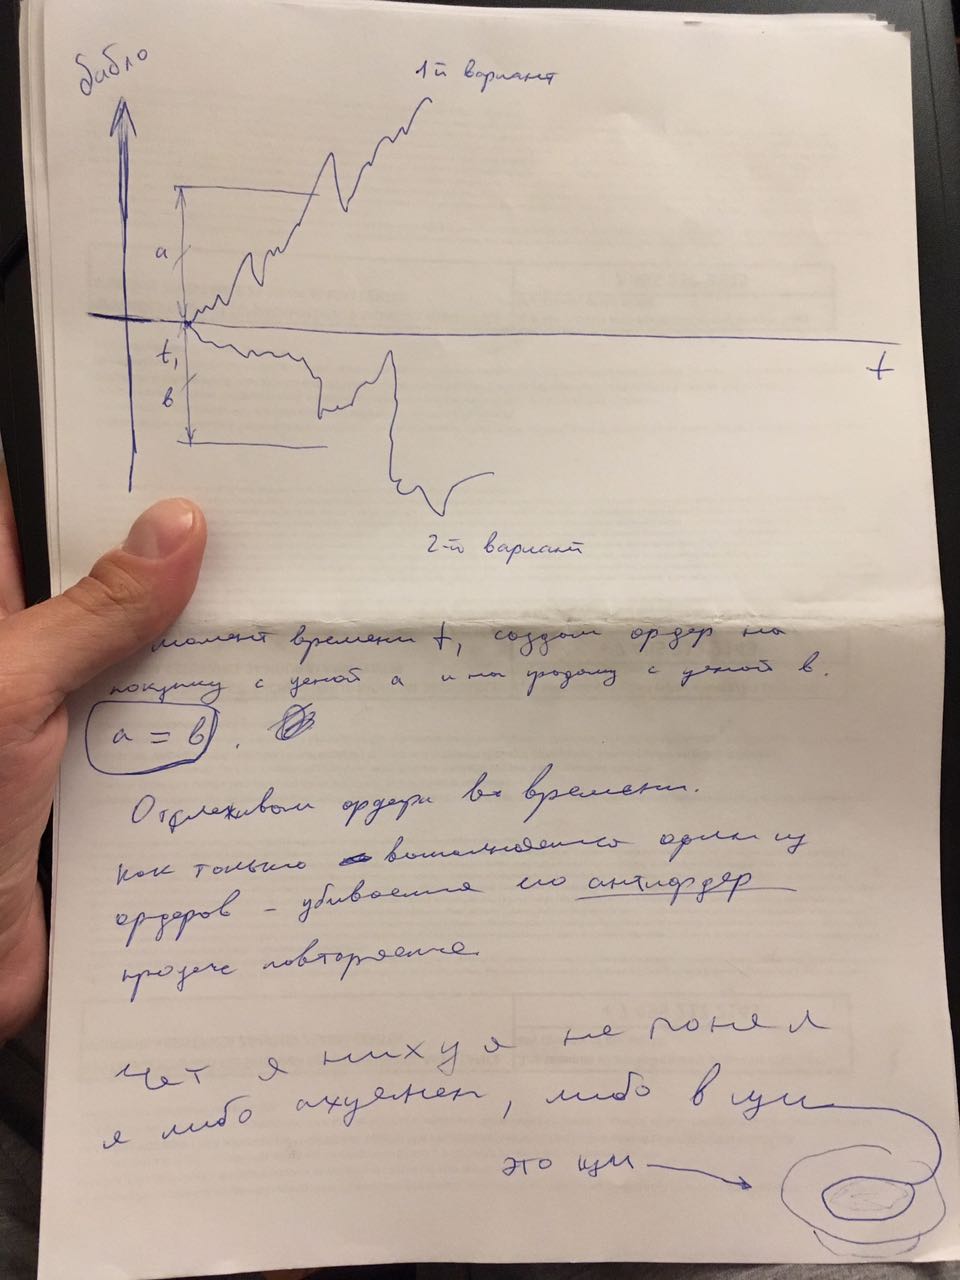 бабло
1й вариант
а
t₁
в
t
2-й вариант
момент времени t, создам ордер на
покупку с ценой а и на продажу с ценой в.
а = в .
Отслеживаем ордера во времени.
как только выполняется один из
ордеров - убивается его антиордер
процесс повторяется.
Чет я нихуя не понял
я либо ахуенен, либо в щи
это щи